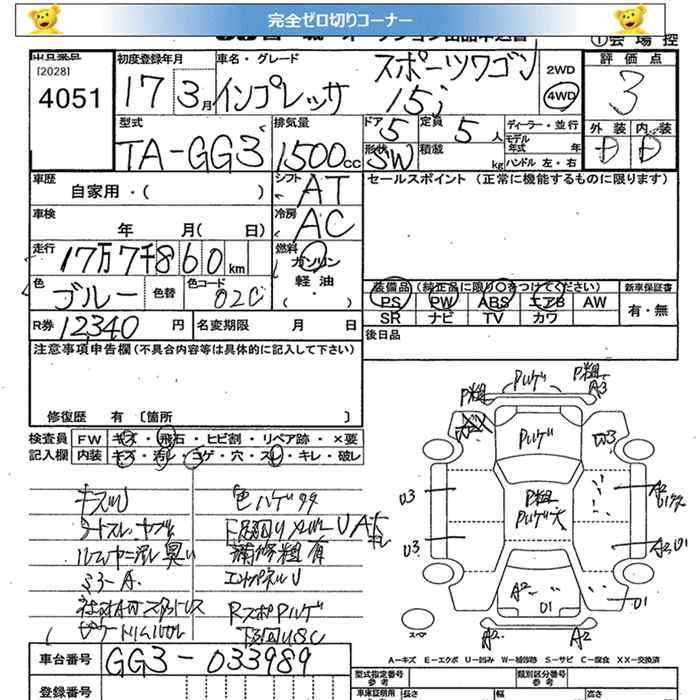 完全ゼロ切りコーナー
①会場控
出品番号
[2028]
4051
初度登録年月
17年 3月
車名・グレード
インプレッサ スポーツワゴン 15i
2WD
4WD
評価点
3
外装 内装
D D
型式
TA-GG3
排気量
1500cc
ドア 5
定員 5人
形状 SW
積載 kg
ディーラー・並行
モデル年式 年
ハンドル 左・右
車歴
自家用・( )
シフト AT
セールスポイント (正常に機能するものに限ります)
車検
年 月( 日)
冷房 AC
走行
17万7千860km
燃料
ガソリン
軽油
( ・ )
色
ブルー
色替
色コード
02C
装備品 (純正品に限り○をつけてください)
新車保証書
PS PW ABS エアB AW
SR ナビ TV カワ
有・無
R券 12340円
名変期限 月 日
後日品
注意事項申告欄 (不具合内容等は具体的に記入して下さい)
修復歴 有 〔箇所 〕
検査員記入欄
FW キズ・飛石・ヒビ割・リペア跡・×要
内装 キズ・汚レ・コゲ・穴・スレ・キレ・破レ
キズU
色ハゲササ
シートスレ・ヤブレ
下廻りメンバーU
ルーフヤニ汚レ臭い
補修粗有
ミラーA
エンドパネルU
Rスポイラハゲ
下廻りUSC
P粗
Pハゲ
P粗
A3
Pハゲ
U3
U3
U3
P粗
Pハゲ大
A2
A2
U1
U1
A2
A2
スペア
車台番号
GG3-033989
A-キズ E-エクボ U-凹み W-補修跡 S-サビ C-腐食 XX-交換済
登録番号
型式指定番号
参考
類別区分番号
参考
車庫証明用
長さ
幅
高さ